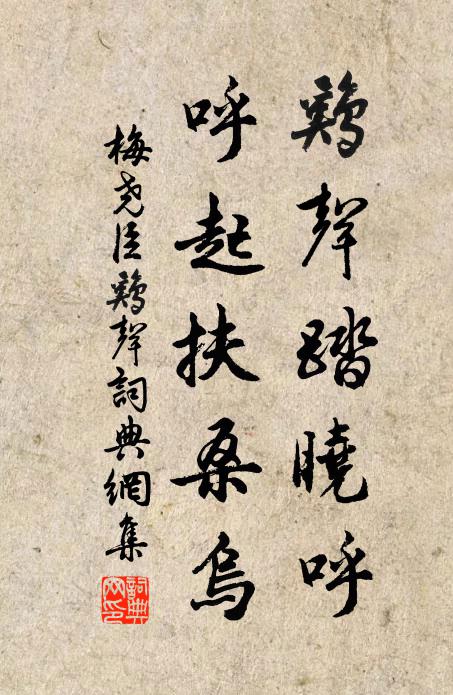 鷄聲踏曉呼
呼起扶桑烏
梅堯臣鷄聲詞典網集
詞典
网印